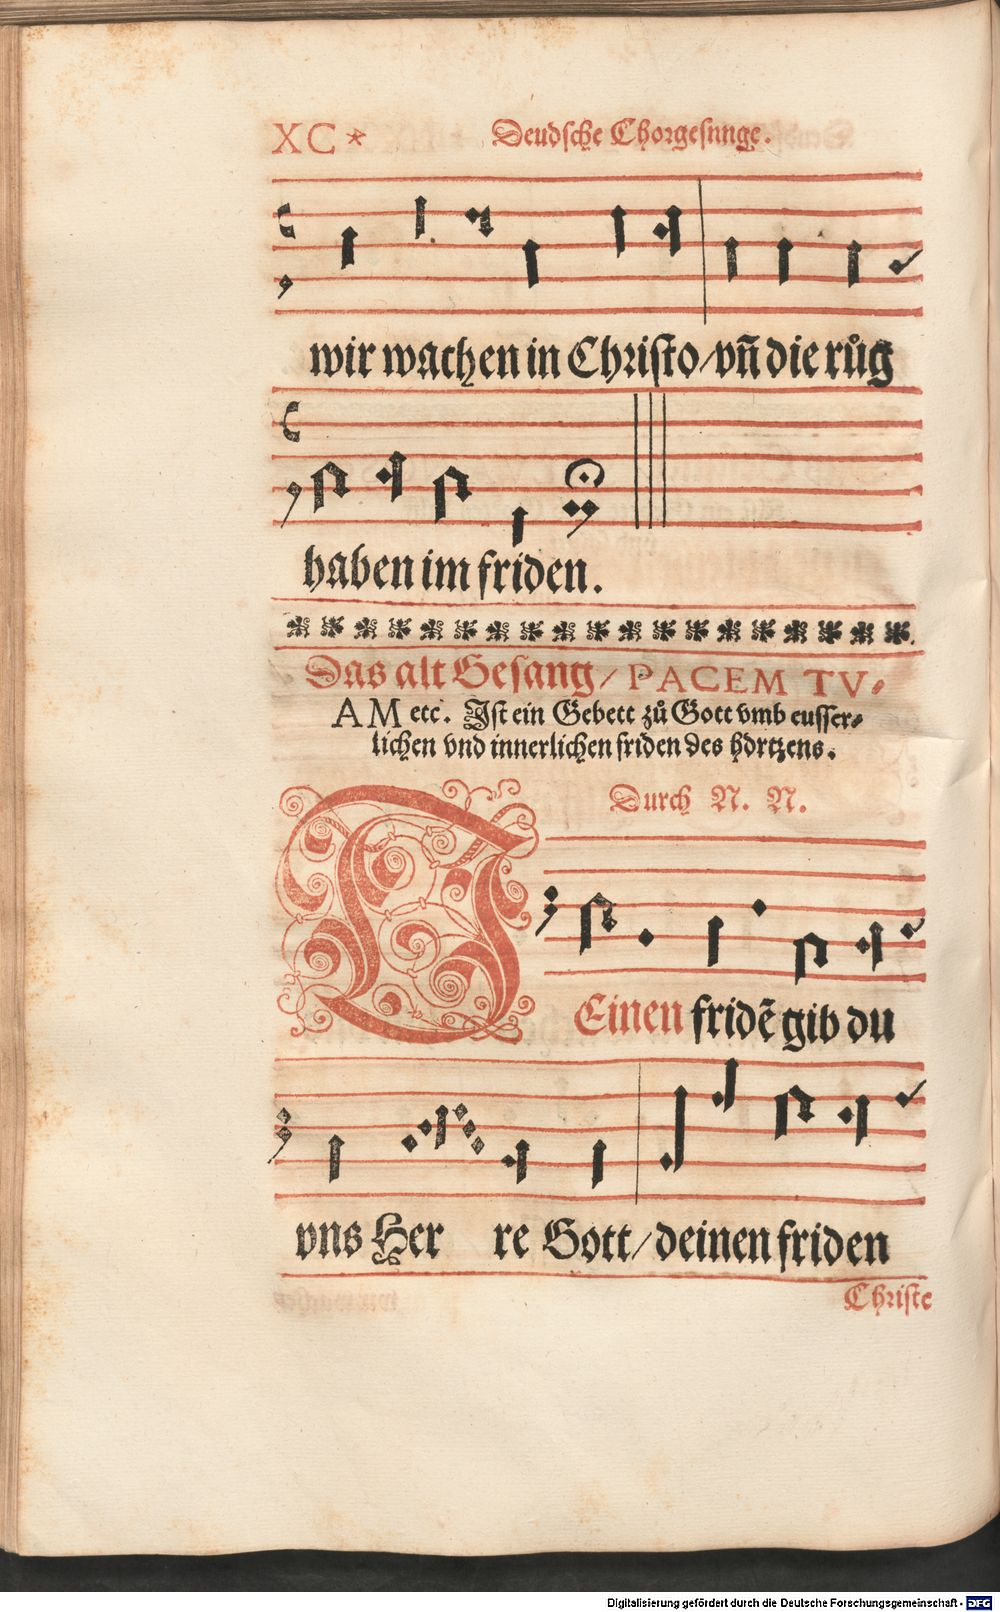 XC*
Deudsche Chorgesange.
wir wachen in Christo/vñ die růg
haben im friden.
Das alt Gesang/ PACEM TV-
AM etc. Ist ein Gebett zů Gott vmb eusser-
lichen vnd innerlichen friden des hertzens.
Durch N. N.
DEinen fridẽ gib du
vns Her re Gott/deinen friden
Christe
Digitalisierung gefördert durch die Deutsche Forschungsgemeinschaft - DFG